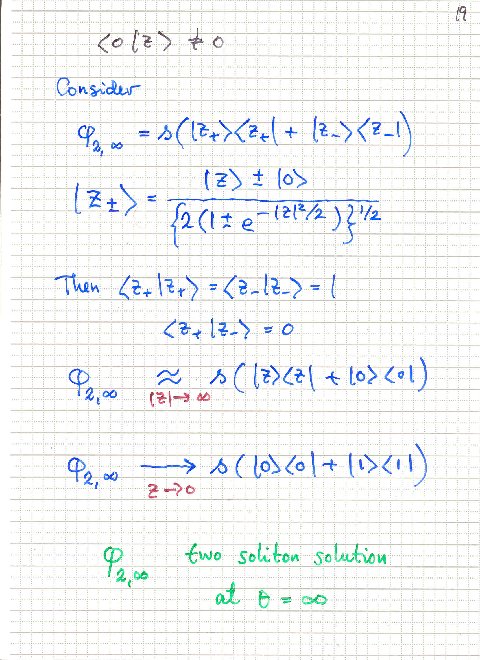 19
⟨0|z⟩ ≠ 0
Consider
φ_{2,∞} = s(|z_+⟩⟨z_+| + |z_-⟩⟨z_-|)
|z_±⟩ = \frac{|z⟩ ± |0⟩}{\{2(1 ± e^{-|z|^2/2})\}^{1/2}}
Then ⟨z_+|z_+⟩ = ⟨z_-|z_-⟩ = 1
⟨z_+|z_-⟩ = 0
φ_{2,∞} ≈_{|z|→∞} s(|z⟩⟨z| + |0⟩⟨0|)
φ_{2,∞} ⟶_{z→0} s(|0⟩⟨0| + |1⟩⟨1|)
φ_{2,∞} two soliton solution
at θ = ∞